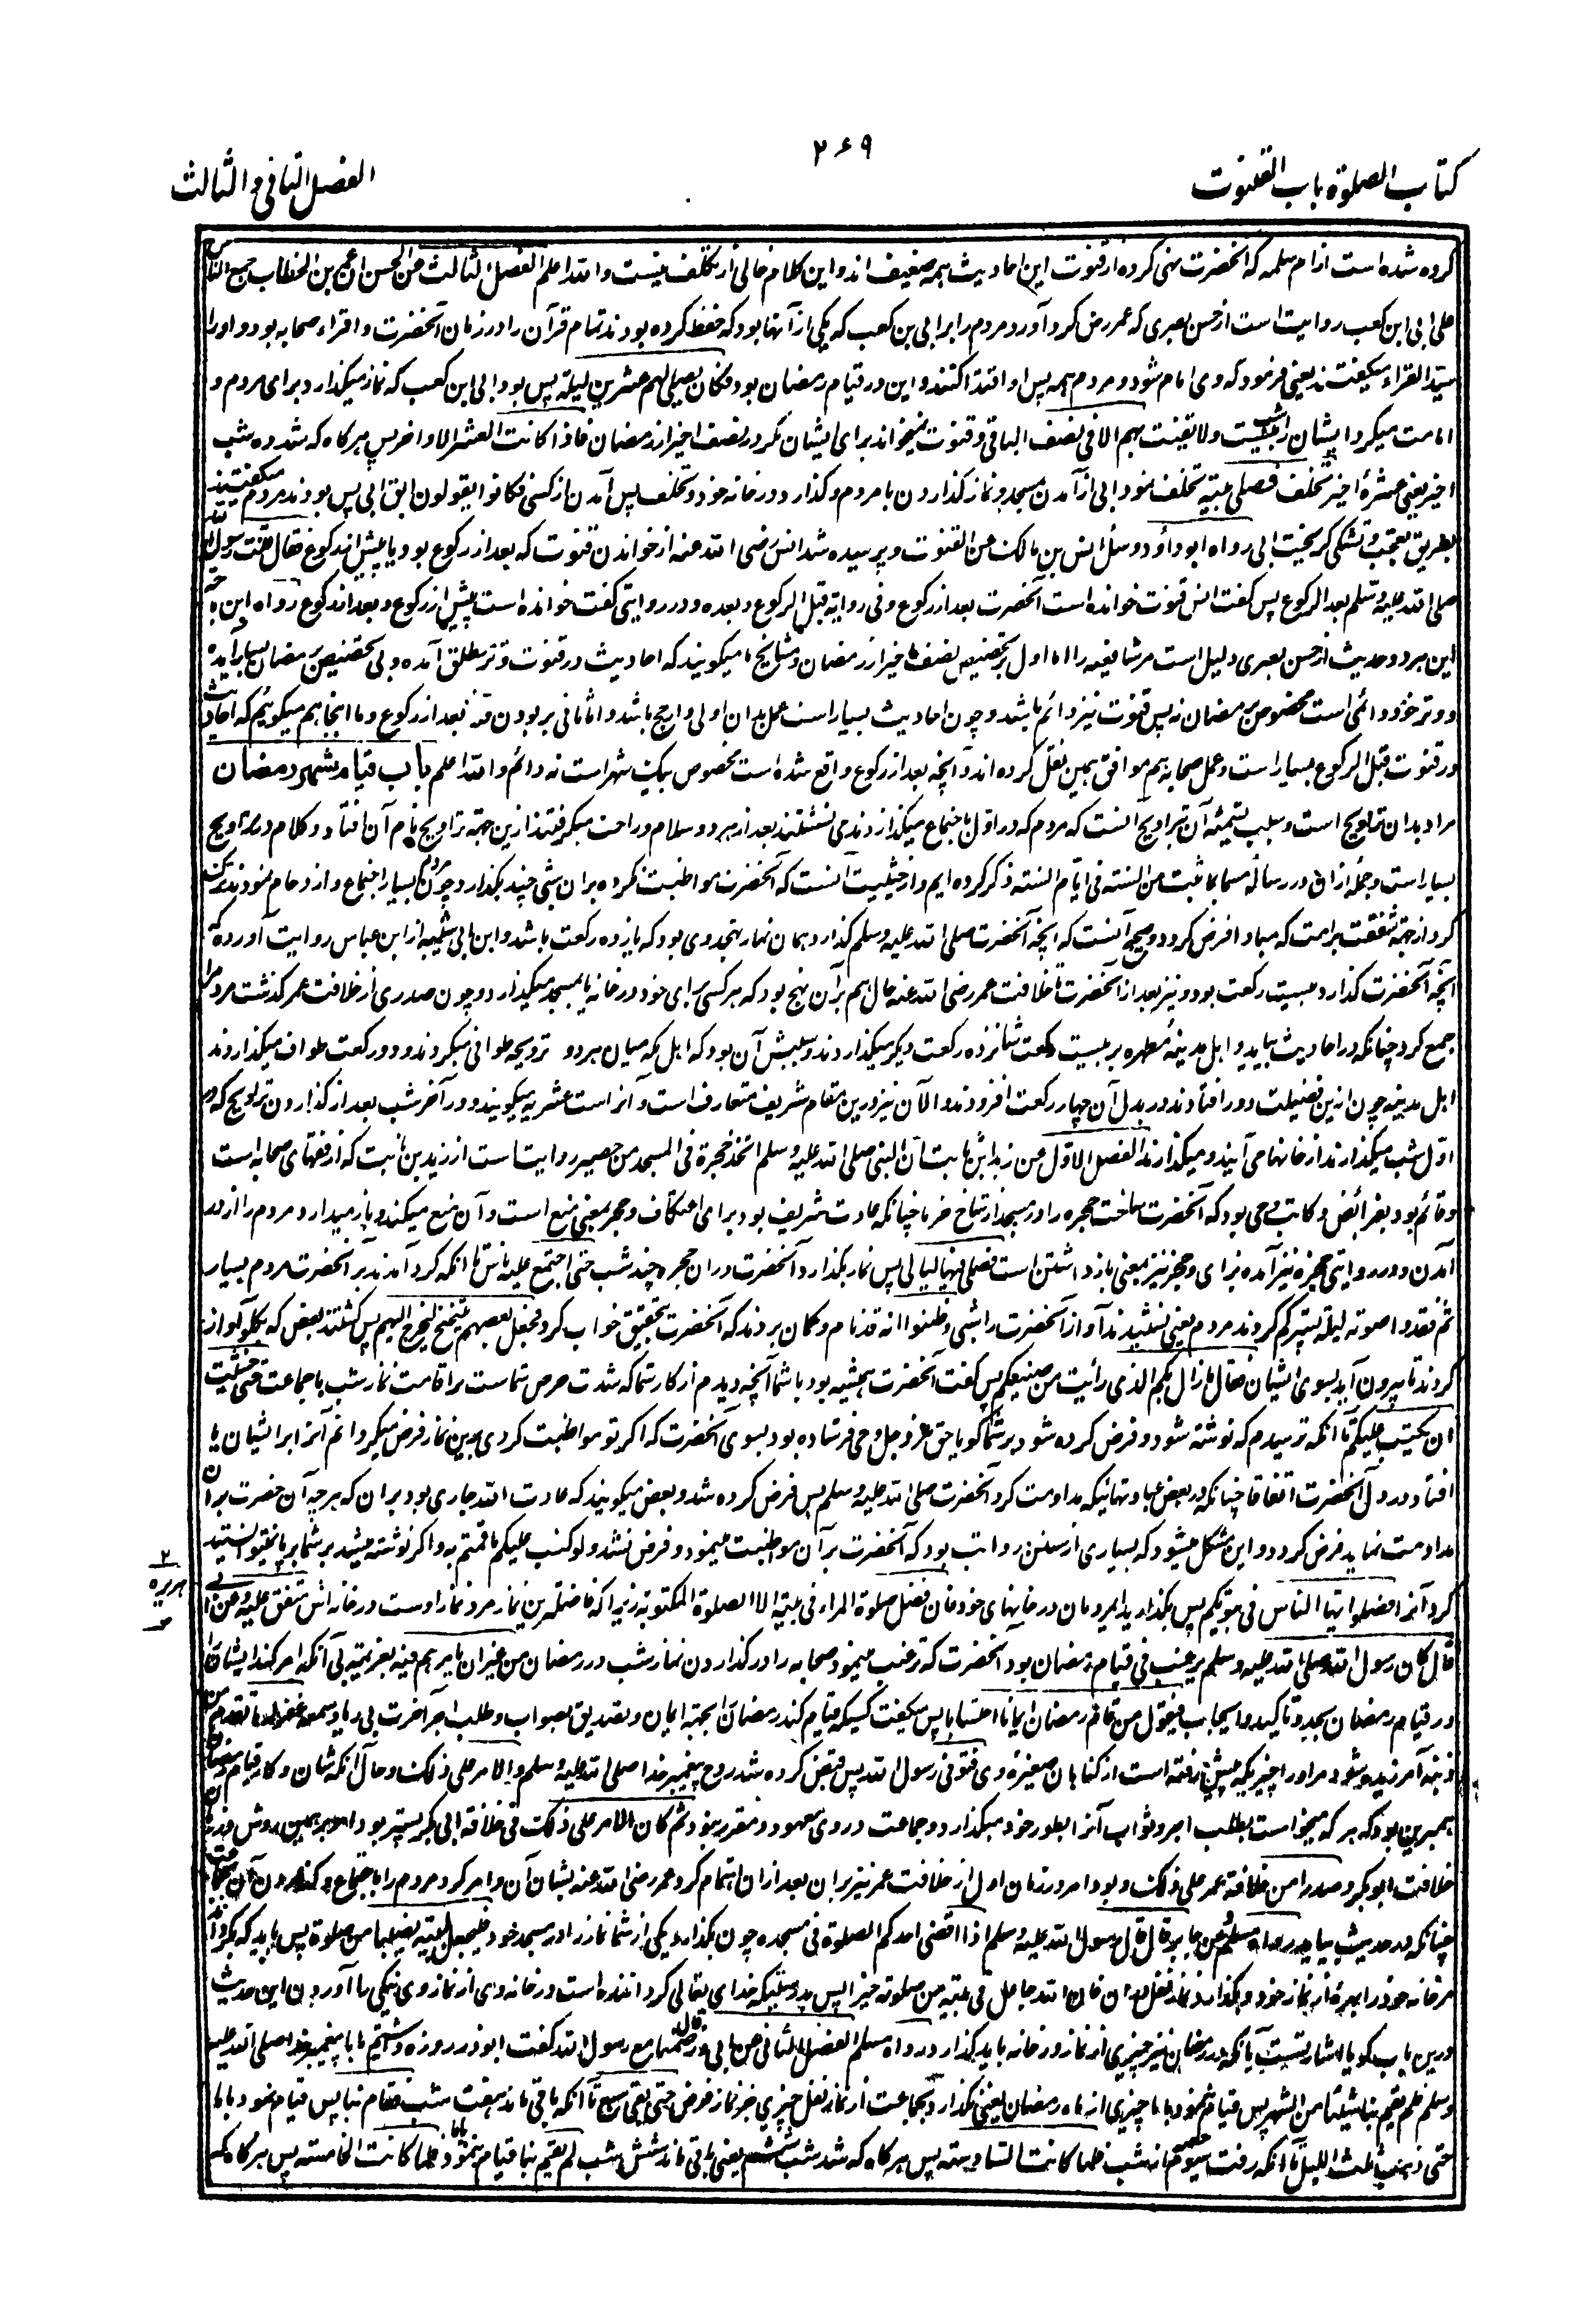 ۲۶۹
کتاب الصلوة باب القنوت
الفصل الثانی و الثالث
کرده شده است از ام سلمه که آنحضرت نهی کرده از قنوت این احادیث همه ضعیف اند و این کلام خالی از تکلف نیست و الله اعلم الفصل الثالث عن الحسن ان عمر بن الخطاب جمع الناس
علی ابی ابن کعب روایت است از حسن بصری که عمر رض گرد آورد مردم را بر ابی بن کعب که یکی از آنها بود که حفظ کرده بودند تمام قرآن را در زمان آنحضرت و اقراء صحابه بود و او را
سید القراء میگفتند یعنی فرمود که وی امام شود و مردم همه پس او اقتدا کنند و این در قیام رمضان بود فکان یصلی لهم عشرین لیلة پس بود ابی ابن کعب که نماز میگذارد برای مردم و
امامت میکرد ایشان را بیست شب و لا یقنت بهم الا فی النصف الباقی و قنوت نمیخواند برای ایشان مگر در نصف اخیر از رمضان فاذا کانت العشر الاواخر پس هرگاه که شد ده شب
اخیر یعنی عشرۀ اخیر تخلف فصلی فی بیته تخلف نمود ابی از آمدن مسجد و نماز گذاردن با مردم و گذارد در خانه خود و تخلف پس آمدن از کسی فکانوا یقولون ابق ابی پس بودند مردم میگفتند
بطریق تعجب و تشکی گریخت ابی رواه ابوداؤد و سئل انس بن مالک عن القنوت و پرسیده شد انس رضی الله عنه از خواندن قنوت که بعد از رکوع بود یا پیش از رکوع فقال قنت رسول الله
صلی الله علیه و سلم بعد الرکوع پس گفت انس قنوت خوانده است آنحضرت بعد از رکوع و فی روایة قبل الرکوع و بعده و در روایتی گفت خوانده است پیش از رکوع و بعد از رکوع رواه ابن ماجه
این هر دو حدیث از حسن بصری دلیل است مر شافعیه را اما اول بر تخصیص بنصف اخیر از رمضان و مشایخ ما میگویند که احادیث در قنوت وتر مطلق آمده و بی تخصیص رمضان بسیار آمده
و وتر خود دائمی است مخصوص برمضان نه پس قنوت نیز دائم باشد و چون احادیث بسیار است عمل بدان اولی و ارجح باشد و اما ثانی بر بودن قنوت بعد از رکوع و ما اینجا هم میگوئیم که احادیث
در قنوت قبل الرکوع بسیار است و عمل صحابه هم موافق همین نقل کرده اند و آنچه بعد از رکوع واقع شده است مخصوص بیک شهر است نه دائم و الله اعلم باب قیام شهر رمضان
مراد بدان تراویح است و سبب تسمیۀ آن بتراویح آنست که مردم که در اول باجتماع میگذاردند می نشستند بعد از هر دو سلام و راحت میگرفتند ازین جهت تراویح نام آن افتاد و کلام در تراویح
بسیار است و جمله ازان در رسالۀ مسما بما ثبت من السنة فی ایام السنة ذکر کرده ایم و از حیثیت آنست که آنحضرت مواظبت نکرده بران شبی چند بگذارد و چون مردم بسیار اجتماع و ازدحام نمودند ترک
کرد از جهت شفقت بر امت که مبادا فرض گردد و صحیح آنست که آنچه آنحضرت صلی الله علیه وسلم گذارد همان نماز تهجد وی بود که یازده رکعت باشد و ابن ابی شیبه از ابن عباس روایت آورده که
آنچه آنحضرت گذارد بیست رکعت بود و نیز بعد از آنحضرت تا خلافت عمر رضی الله عنه حال هم برآن نهج بود که هر کسی برای خود در خانه یا بمسجد میگذارد و چون صدری از خلافت عمر گذشت مردم را
جمع کرد چنانکه در احادیث بیاید و اهل مدینۀ مطهره بر بیست رکعت شانزده رکعت دیگر میگذاردند و سببش آن بود که اهل مکه میان هر دو ترویحه طوافی میکردند و دو رکعت طواف میگذاردند
اهل مدینه چون ازین فضیلت دور افتادند در بدل آن چهار رکعت افزودند و الآن نیز درین مقام شریف متعارف است و آنرا ست عشریه میگویند و در آخر شب بعد از گذاردن تراویح که در
اول شب میگذارند از خانها می آیند و میگذارند الفصل الاول عن زید ابن ثابت ان النبی صلی الله علیه وسلم اتخذ حجرة فی المسجد من حصیر روایت است از زید بن ثابت که از فقهای صحابه است
و قائم بود بفرائض و کاتب وحی بود که آنحضرت ساخت حجره را در مسجد از شاخ خرما چنانکه عادت شریف بود برای اعتکاف و حجر بمعنی منع است و آن منع میکند و باز میدارد مردم را از در
آمدن و در روایتی حجزه نیز آمده بزای و حجز نیز بمعنی باز داشتن است فصلی فیها لیالی پس نماز بگذارد آنحضرت دران حجره چند شب حتی اجتمع علیه ناس تا آنکه گرد آمدند بر آنحضرت مردم بسیار
ثم فقدوا صوته لیلة پستر گم کردند مردم یعنی نشنیدند آواز آنحضرت را شبی و ظنوا انه قد نام و گمان بردند که آنحضرت بتحقیق خواب کرد فجعل بعضهم یتنحنح لیخرج الیهم پس گشتند بعض که بگلو آواز
کردند تا بیرون آید بسوی ایشان فقال ما زال بکم الذی رأیت من صنیعکم پس گفت آنحضرت همیشه بود با شما آنچه دیدم از کار شما که شدت حرص شماست بر اقامت نماز شب با جماعت حتی خشیت
ان یکتب علیکم تا آنکه ترسیدم که نوشته شود و فرض کرده شود بر شما گویا حق عز و جل وحی فرستاده بود بسوی آنحضرت که اگر تو مواظبت کردی برین نماز فرض میگردانم آنرا بر ایشان یا
افتاد در دل آنحضرت اتفاقا چنانکه در بعض عبادتهائیکه مداومت کرد آنحضرت صلی الله علیه وسلم پس فرض کرده شد و بعض میگویند که عادت الله جاری بود بران که هر چه آن حضرت بران
مداومت نماید فرض گردد و این مشکل میشود که بسیاری از سنن رواتب بود که آنحضرت برآن مواظبت مینمود و فرض نشد و لو کتب علیکم ما قمتم به و اگر نوشته میشد بر شما برپا نمیتوانستید
کرد آنرا فصلوا ایها الناس فی بیوتکم پس بگذارید ای مردمان در خانهای خود فان افضل صلوة المرء فی بیته الا الصلوة المکتوبة زیرا که فاضلترین نماز مرد نماز اوست در خانه اش متفق علیه و عن ابی
۲
هریره
صح
قال کان رسول الله صلی الله علیه وسلم یرغب فی قیام رمضان بود آنحضرت که ترغیب مینمود صحابه را در گذاردن نماز شب در رمضان من غیر ان یامرهم فیه بعزیمة بی آنکه امر کند ایشان را
در قیام رمضان بجد و تاکید و ایجاب فیقول من قام رمضان ایمانا و احتسابا پس میگفت کسیکه قیام کند رمضان را بجهة ایمان و تصدیق بصواب و طلب اجر آخرت بی ریا و سمعه غفر له ما تقدم من
ذنبه آمرزیده شود مر او را چیزیکه پیش رفته است از گناهان صغیرۀ وی فتوفی رسول الله پس قبض کرده شد روح پیغمبر خدا صلی الله علیه وسلم و الامر علی ذلک و حال آنکه شان و کار قیام رمضان
همبرین بود که هر که میخواست بطلب اجر و ثواب آنرا بطور خود میگذارد و جماعت در وی معهود و مقرر نبود ثم کان الامر علی ذلک فی خلافة ابی بکر پستر بود امر بر همین روش در زمان
خلافت ابوبکر و صدرا من خلافة عمر علی ذلک و بود امر در زمان اول از خلافت عمر نیز بران بعد ازان اهتمام کرد عمر رضی الله عنه بشان آن و امر کرد مردم را باجتماع و گذاردن آن بجماعت
چنانکه در حدیث بیاید رواه مسلم و عن جابر قال قال رسول الله علیه وسلم اذا قضی احدکم الصلوة فی مسجده چون بگذارد یکی از شما نماز را در مسجد خود فلیجعل لبیته نصیبا من صلوته پس باید که بگرداند
مر خانه خود را بهرۀ از نماز خود و بگذارد نماز نفل دران فان الله جاعل فی بیته من صلوته خیرا پس بدرستیکه خدای تعالی گرداننده است در خانه وی از نماز وی نیکی را آوردن این حدیث
درین باب گویا اشارتست بآنکه در رمضان نیز چیزی از نماز در خانه باید گذارد رواه مسلم الفصل الثانی عن ابی ذر قال صمنا مع رسول الله گفت ابوذر روزه داشتیم ما با پیغمبر خدا صلی الله علیه
وسلم فلم یقم بنا شیئا من الشهر پس قیام ننمود با ما چیزی از ماه رمضان یعنی نگذارد بجماعت از نماز نفل چیزی جز نماز فرض حتی بقی سبع تا آنکه باقی ماند هفت شب فقام بنا پس قیام نمود با ما
حتی ذهب ثلث اللیل تا آنکه رفت سیوم حصه از شب فلما کانت السادسة پس هرگاه که شد شب ششم یعنی باقی ماند شش شب لم یقم بنا قیام ننمود باما فلما کانت الخامسة پس هرگاه که